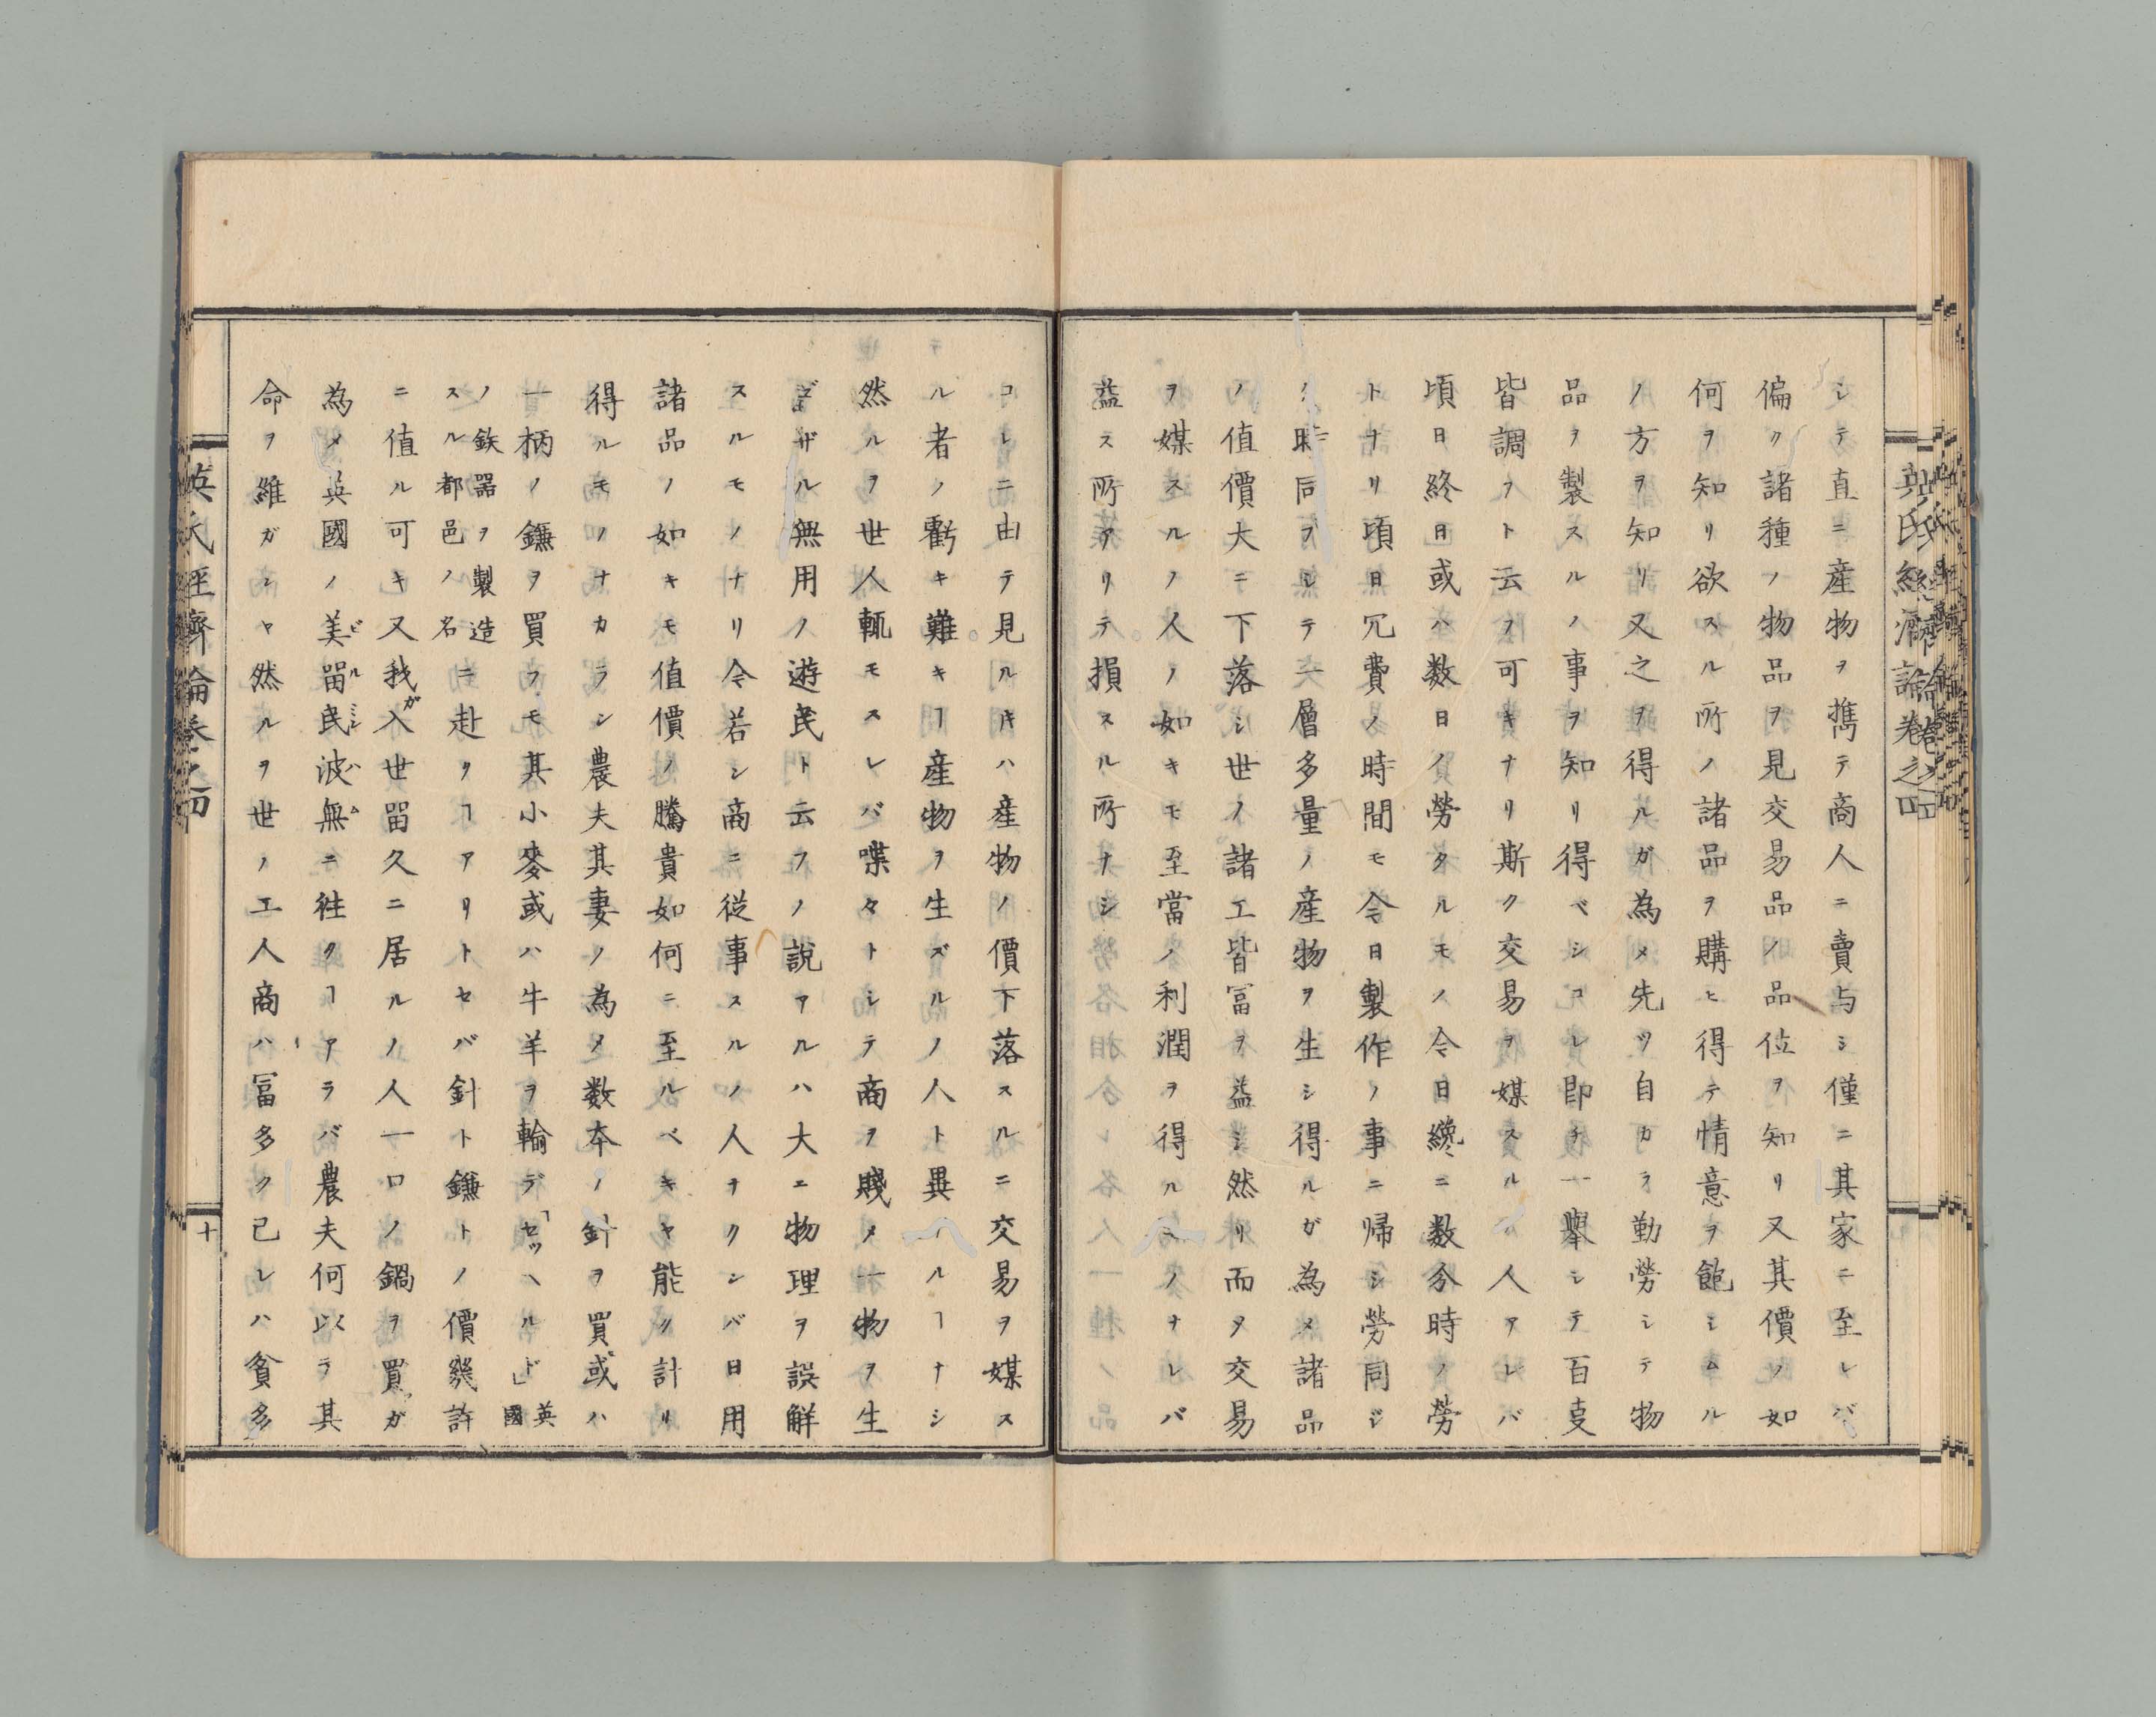 英氏經濟論卷之四
シテ直ニ産物ヲ携テ商人ニ賣与シ僅ニ其家ニ至レバ
偏ク諸種ノ物品ヲ見交易品ノ品位ヲ知リ又其價ノ如
何ヲ知リ欲スル所ノ諸品ヲ購ヒ得テ情意ヲ飽シムル
ノ方ヲ知リ又之ヲ得ルガ為メ先ツ自カラ勤勞シテ物
品ヲ製スルノ事ヲ知リ得ベシコレ即チ一擧シテ百叓
皆調フト云フ可キナリ斯ク交易ヲ媒スルノ人アレバ
頃日終日或ハ数日ノ勞タルモノ今日纔ニ数分時ノ勞
トナリ頃日冗費ノ時間モ今日製作ノ事ニ帰シ勞同ジ
ク時同フシテ一層多量ノ産物ヲ生シ得ルガ為メ諸品
ノ値價大ニ下落シ世ノ諸工皆冨ヲ益シ然リ而タ交易
ヲ媒スルノ人ノ如キモ至當ノ利潤ヲ得ルミノナレバ
益ス所アリテ損スル所ナシ
コレニ由テ見ルキハ産物ノ價下落スルニ交易ヲ媒ス
ル者ノ虧キ難キヿ産物ヲ生ズルノ人ト異ハルヿナシ
然ルヲ世人輒モスレバ喋々トシテ商ヲ賤メ一物ヲ生
ゼザル無用ノ遊民ト云フノ説アルハ大エ物理ヲ誤解
スルモノナリ今若シ商ニ従事スルノ人ナクンバ日用
諸品ノ如キモ値價ノ騰貴如何ニ至ルベキヤ能ク計リ
得ルモノナカラン農夫其妻ノ為メ数本ノ針ヲ買或ハ
一柄ノ鎌ヲ買フモ其小麥或ハ牛羊ヲ輸デ「セッヘルド」英國
ノ鉄器ヲ製造スル都邑ノ名ニ赴クヿアリトセバ針ト鎌トノ價幾許
ニ値ル可キ又我ガ入世畱久ニ居ルノ人一ロノ鍋ヲ買ガ
為メ英國ノ美畱民波無ニ徃クヿアラバ農夫何以ラ其
命ヲ維ガンヤ然ルヲ世ノ工人商ハ冨多ク已レハ貧多
英氏經濟論卷之四
十